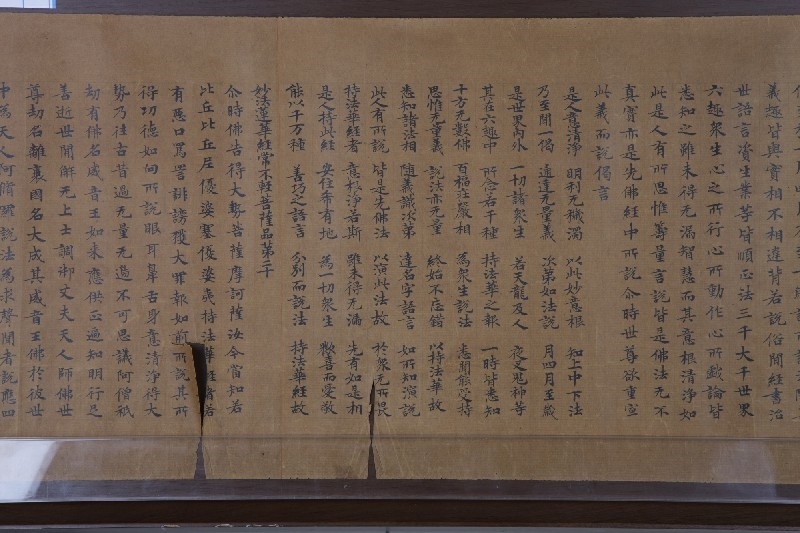 義趣皆與實相不相違背若說俗閒經書治
世語言資生業等皆順正法三千大千世界
六趣衆生心之所行心所動作心所戲論皆
悉知之雖未得无漏智慧而其意根清淨如
此是人有所思惟籌量言說皆是佛法无不
真實亦是先佛經中所說尒時世尊欲重宣
此義而說偈言
是人意清淨 明利无穢濁 以此妙意根 知上中下法
乃至聞一偈 通達无量義 次第如法說 月四月至歲
是世界內外 一切諸衆生 若天龍及人 夜叉鬼神等
其在六趣中 所念若干種 持法華之報 一時皆悉知
十方无數佛 百福莊嚴相 為衆生說法 悉聞能受持
思惟无量義 說法亦无量 終始不忘錯 以持法華故
悉知諸法相 隨義識次第 達名字語言 如所知演說
此人有所說 皆是先佛法 以演此法故 於衆无所畏
持法華經者 意根淨若斯 雖未得无漏 先有如是相
是人持此經 安住希有地 為一切衆生 歡喜而愛敬
能以千万種 善巧之語言 分別而說法 持法華經故
妙法蓮華經常不輕菩薩品第二十
尒時佛告得大勢菩薩摩訶薩汝今當知若
比丘比丘尼優婆塞優婆夷持法華經者若
有惡口罵詈誹謗獲大罪報如前所說其所
得功德如向所說眼耳鼻舌身意清淨得大
勢乃往古昔過无量无邊不可思議阿僧祇
劫有佛名威音王如來應供正遍知明行足
善逝世閒解无上士調御丈夫天人師佛世
尊劫名離衰國名大成其威音王佛於彼世
中為天人阿脩羅說法為求聲聞者說應四